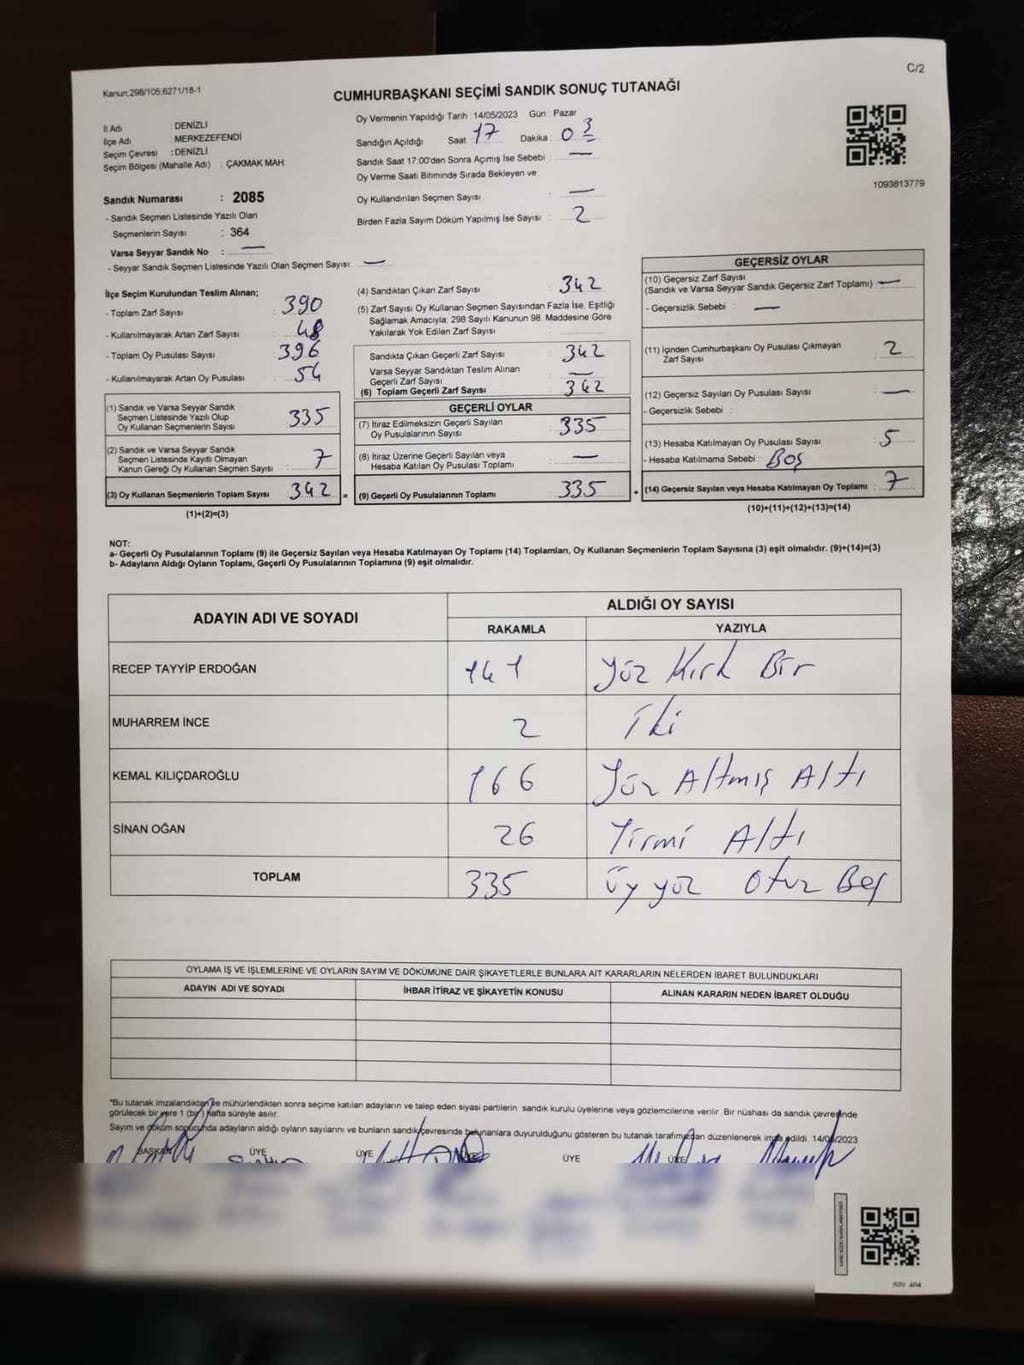 Kanun:298/105;6271/18-1
C/2
CUMHURBAŞKANI SEÇİMİ SANDIK SONUÇ TUTANAĞI
İl Adı : DENİZLİ
İlçe Adı : MERKEZEFENDİ
Seçim Çevresi : DENİZLİ
Seçim Bölgesi (Mahalle Adı) : ÇAKMAK MAH.
Sandık Numarası : 2085
- Sandık Seçmen Listesinde Yazılı Olan
Seçmenlerin Sayısı : 364
Varsa Seyyar Sandık No : —
- Seyyar Sandık Seçmen Listesinde Yazılı Olan Seçmen Sayısı: —
Oy Vermenin Yapıldığı Tarih : 14/05/2023 Gün : Pazar
Sandığın Açıldığı Saat : 17 Dakika : 03
Sandık Saat 17:00'den Sonra Açımış İse Sebebi : —
Oy Verme Saati Bitiminde Sırada Bekleyen ve
Oy Kullandırılan Seçmen Sayısı : —
Birden Fazla Sayım Döküm Yapılmış İse Sayısı : 2
1093813779
İlçe Seçim Kurulundan Teslim Alınan;
- Toplam Zarf Sayısı : 390
- Kullanılmayarak Artan Zarf Sayısı : 48
- Toplam Oy Pusulası Sayısı : 396
- Kullanılmayarak Artan Oy Pusulası : 54
(1) Sandık ve Varsa Seyyar Sandık
Seçmen Listesinde Yazılı Olup
Oy Kullanan Seçmenlerin Sayısı : 335
(2) Sandık ve Varsa Seyyar Sandık
Seçmen Listesinde Kayıtlı Olmayan
Kanun Gereği Oy Kullanan Seçmen Sayısı : 7
(3) Oy Kullanan Seçmenlerin Toplam Sayısı : 342 =
(1)+(2)=(3)
(4) Sandıktan Çıkan Zarf Sayısı : 342
(5) Zarf Sayısı Oy Kullanan Seçmen Sayısından Fazla İse, Eşitliği
Sağlamak Amacıyla; 298 Sayılı Kanunun 98. Maddesine Göre
Yakılarak Yok Edilen Zarf Sayısı :
Sandıkta Çıkan Geçerli Zarf Sayısı : 342
Varsa Seyyar Sandıktan Teslim Alınan
Geçerli Zarf Sayısı : —
(6) Toplam Geçerli Zarf Sayısı : 342
GEÇERLİ OYLAR
(7) İtiraz Edilmeksizin Geçerli Sayılan
Oy Pusulalarının Sayısı : 335
(8) İtiraz Üzerine Geçerli Sayılan veya
Hesaba Katılan Oy Pusulası Toplamı : —
(9) Geçerli Oy Pusulalarının Toplamı : 335 +
GEÇERSİZ OYLAR
(10) Geçersiz Zarf Sayısı
(Sandık ve Varsa Seyyar Sandık Geçersiz Zarf Toplamı) : —
- Geçersizlik Sebebi : —
(11) İçinden Cumhurbaşkanı Oy Pusulası Çıkmayan
Zarf Sayısı : 2
(12) Geçersiz Sayılan Oy Pusulası Sayısı : —
- Geçersizlik Sebebi :
(13) Hesaba Katılmayan Oy Pusulası Sayısı : 5
- Hesaba Katılmama Sebebi : Boş
(14) Geçersiz Sayılan veya Hesaba Katılmayan Oy Toplamı : 7
(10)+(11)+(12)+(13)=(14)
NOT:
a- Geçerli Oy Pusulalarının Toplamı (9) ile Geçersiz Sayılan veya Hesaba Katılmayan Oy Toplamı (14) Toplamları, Oy Kullanan Seçmenlerin Toplam Sayısına (3) eşit olmalıdır. (9)+(14)=(3)
b- Adayların Aldığı Oyların Toplamı, Geçerli Oy Pusulalarının Toplamına (9) eşit olmalıdır.
ADAYIN ADI VE SOYADI ALDIĞI OY SAYISI
RAKAMLA YAZIYLA
RECEP TAYYİP ERDOĞAN 141 Yüz Kırk Bir
MUHARREM İNCE 2 İki
KEMAL KILIÇDAROĞLU 166 Yüz Altmış Altı
SİNAN OĞAN 26 Yirmi Altı
TOPLAM 335 Üçyüz Otuz Beş
OYLAMA İŞ VE İŞLEMLERİNE VE OYLARIN SAYIM VE DÖKÜMÜNE DAİR ŞİKAYETLERLE BUNLARA AİT KARARLARIN NELERDEN İBARET BULUNDUKLARI
ADAYIN ADI VE SOYADI İHBAR İTİRAZ VE ŞİKAYETİN KONUSU ALINAN KARARIN NEDEN İBARET OLDUĞU
*Bu tutanak imzalandıktan ve mühürlendikten sonra seçime katılan adayların ve talep eden siyasi partilerin sandık kurulu üyelerine veya gözlemcilerine verilir. Bir nüshası da sandık çevresinde
görülecek bir yere 1 (bir) hafta süreyle asılır.
Sayım ve döküm sonucunda adayların aldığı oyların sayılarını ve bunların sandık çevresinde bulunanlara duyurulduğunu gösteren bu tutanak tarafımızdan düzenlenerek imza edildi. 14/05/2023
BAŞKAN ÜYE ÜYE ÜYE ÜYE